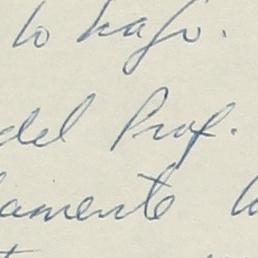 lo hago.
del Prof.
lamente